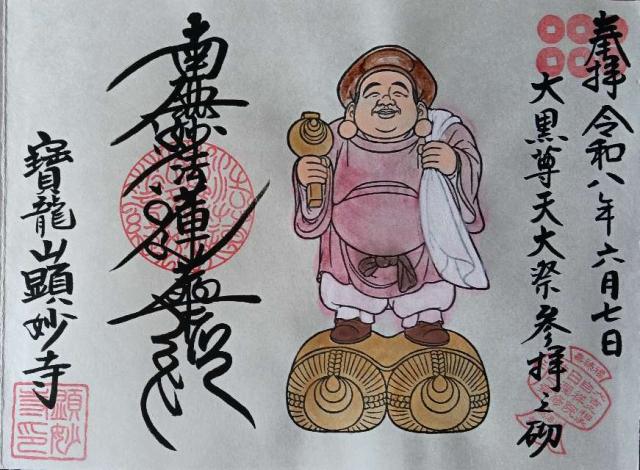 奉拝 令和八年六月七日
大黒尊天大祭参拝之砌
南無妙法蓮華経
寶龍山顕妙寺
顕妙
寺印